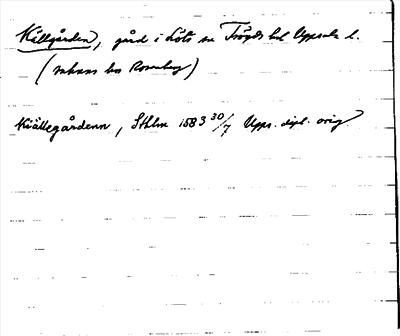 Källgården, gård i Löts sn Trögds hd Uppsala l.
(saknas hos Rosenberg)
Kiällegårdenn, Sthlm 1583 30/7 Upps. dipl. orig.